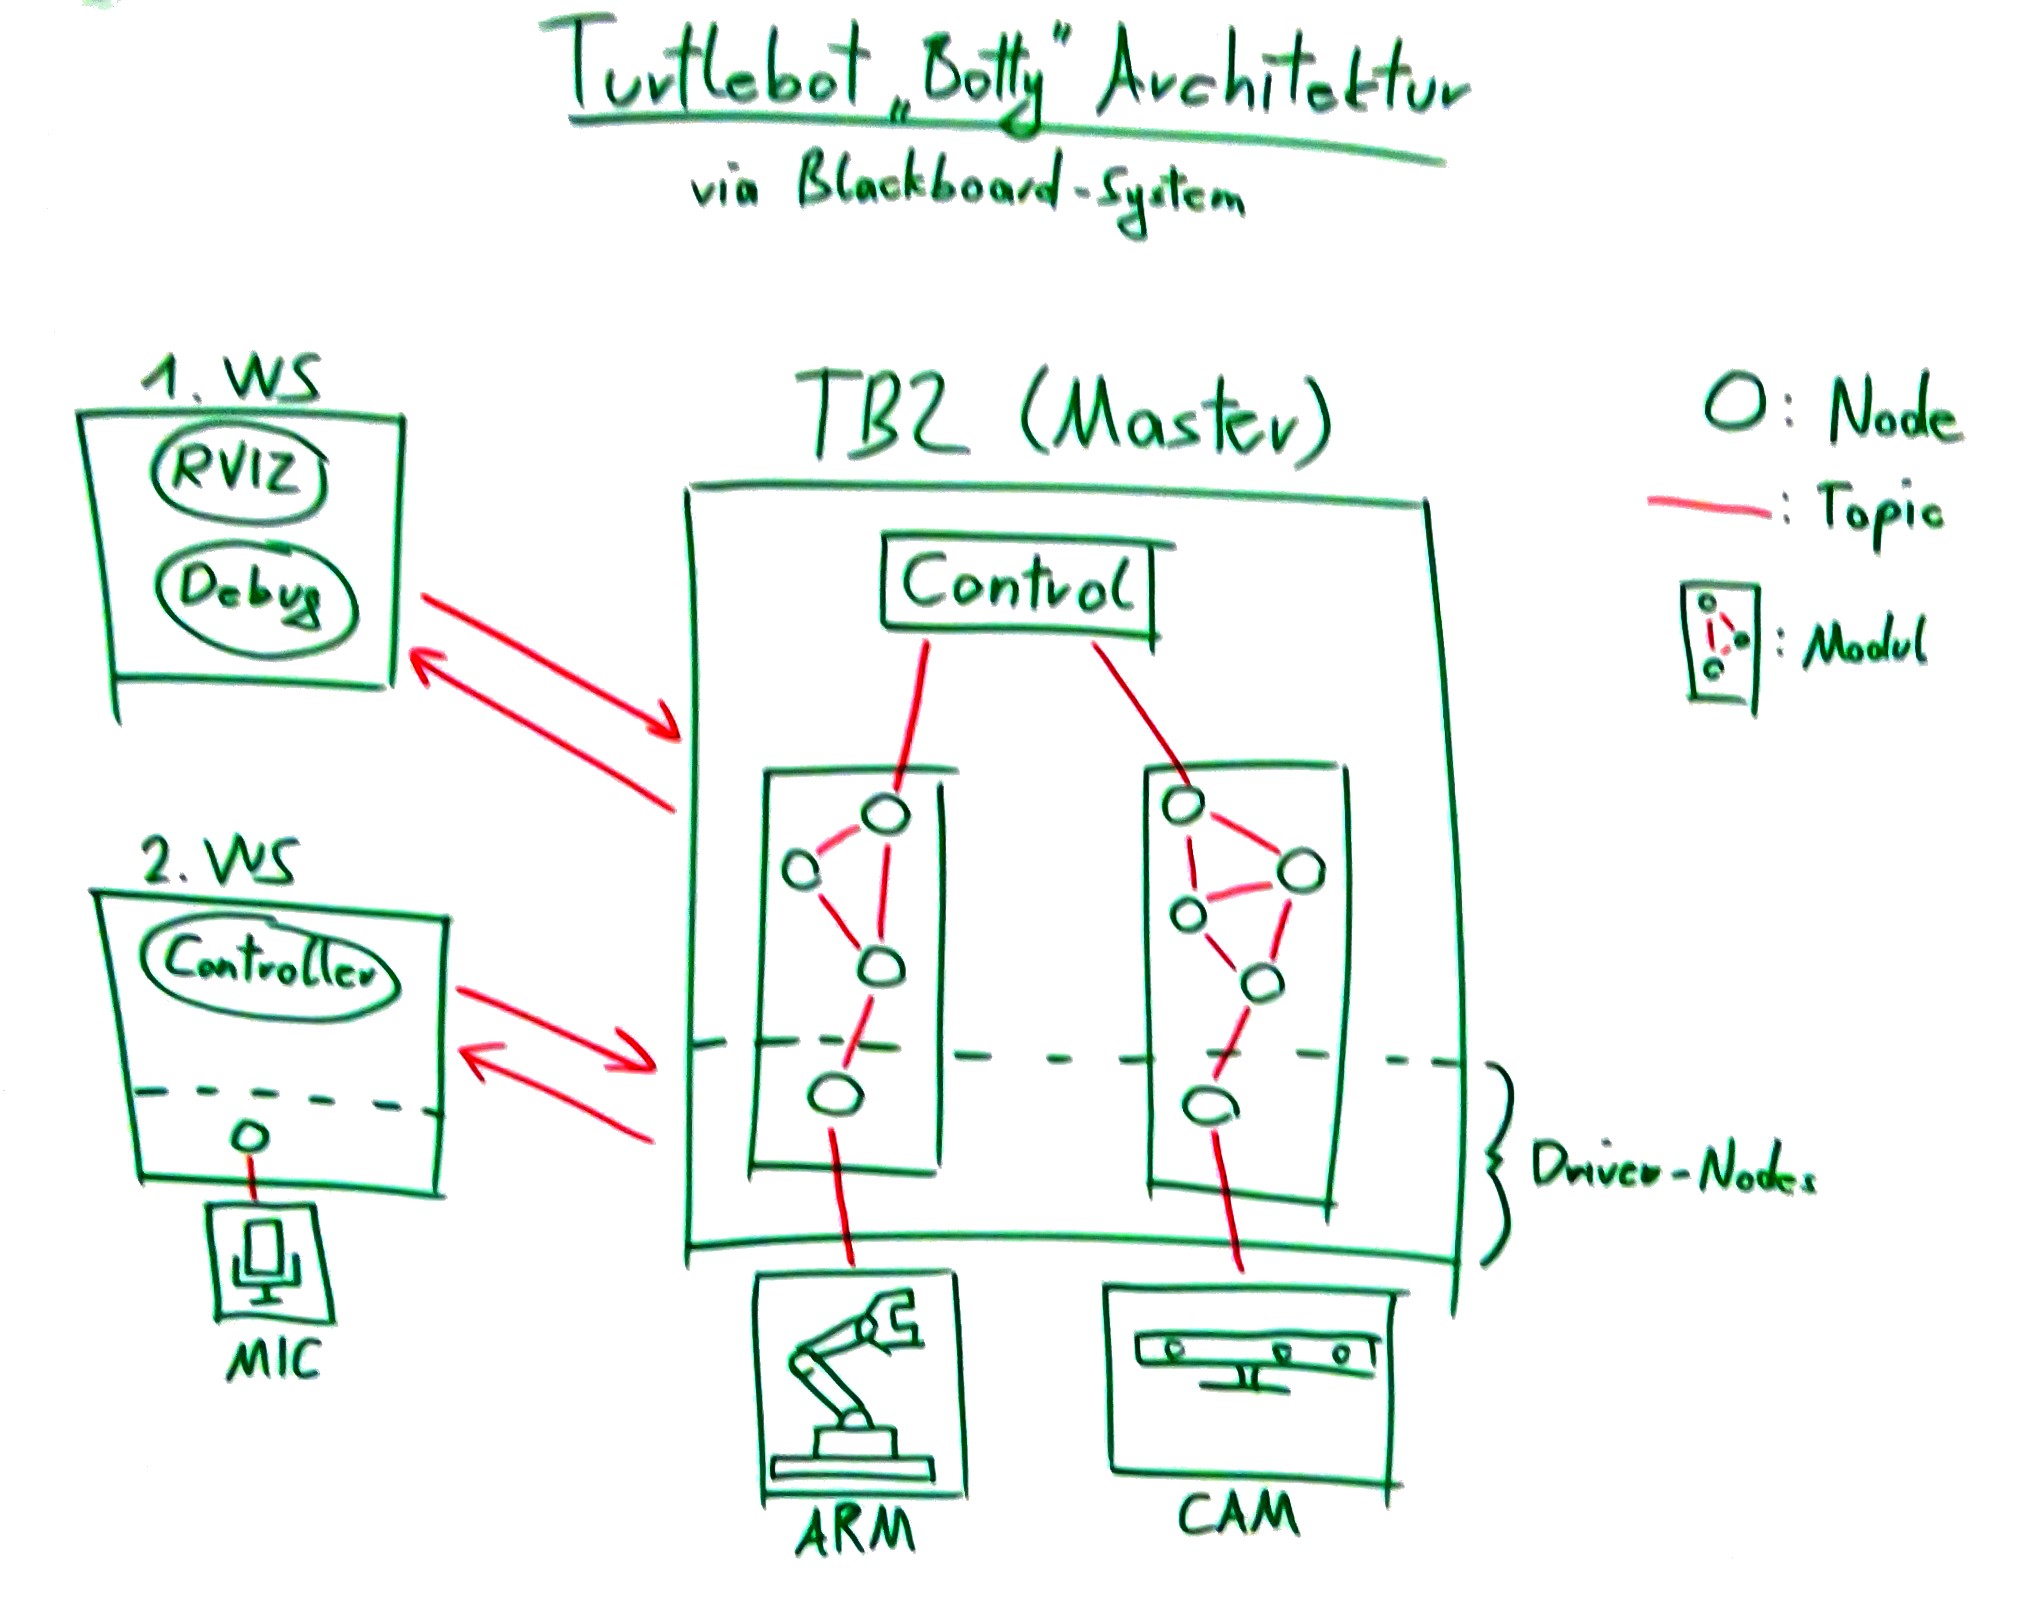 Turtlebot „Botty“ Architektur
via Blackboard-System
1. WS
RVIZ
Debug
2. WS
Controller
MIC
TB2 (Master)
Control
ARM
CAM
Driver-Nodes
O: Node
: Topic
: Modul